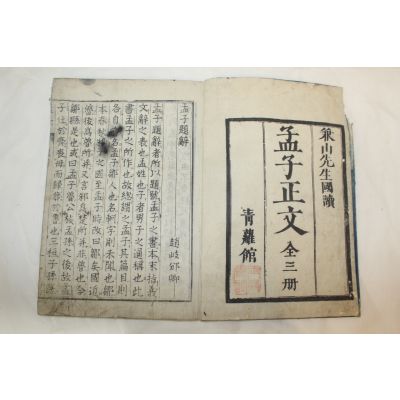 兼山先生國讀
孟子正文 全三册
青蘿館
孟子題辭
趙岐邠卿
孟子題辭者所以題號孟子之書本末指義
文辭之表也孟姓也子者男子之通稱也此
書孟子之所作也故總謂之孟子其篇目則
各自有名孟子鄒人也名軻字則未聞也鄒
本春秋之國至孟子時改曰鄒矣國近
魯後爲魯所并又言邾爲楚所并非魯也今
鄒縣是也或曰孟子魯公族孟孫之後故孟
子仕於齊喪母而歸葬於魯也三桓子孫